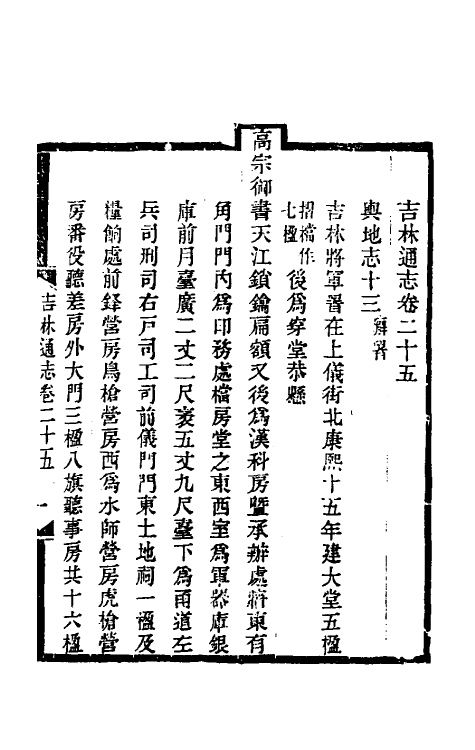 吉林通志卷二十五
輿地志十三 廨署
吉林將軍署在上儀街北康熙十五年建大堂五楹
招檔作七楹後爲穿堂恭懸
高宗御書天江鎖鑰扁額又後爲漢科房暨承辦處將東有
角門門內爲印務處檔房堂之東西室爲軍器庫銀
庫前月臺廣二丈二尺袤五丈九尺臺下爲甬道左
兵司刑司右戶司工司前儀門門東土地祠一楹及
糧餉處前鋒營房鳥槍營房西爲水師營房虎槍營
房番役聽差房外大門三楹八旗聽事房共十六楹
吉林通志卷二十五 一